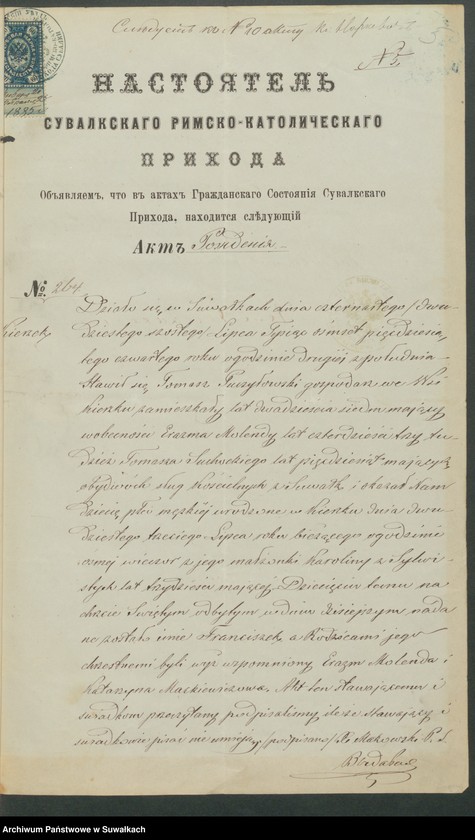 къ № 10 акту
№
НАСТОЯТЕЛЬ
СУВАЛКСКАГО РИМСКО-КАТОЛИЧЕСКАГО
ПРИХОДА
Объявляемъ, что въ актахъ Гражданскаго Состоянія Сувалкскаго
Прихода, находится слѣдующій
Актъ Рожденія
№ 264.
Działo się w Suwałkach dnia czternastego/dwu
dziestego szóstego/ Lipca Tysiąc ośmset pięćdziesią
tego czwartego roku o godzinie drugiej z południa
Stawił się Tomasz gospodarz we Wsi
zamieszkały lat dwadzieścia siedm mający
w obecności Erazma Molendy lat czterdzieści trzy tu
dzież Tomasza Suchockiego lat pięćdziesiąt mających
obydwóch sług Kościelnych z Suwałk i okazał Nam
Dziecię płci męzkiej urodzone w dnia dwu
dziestego trzeciego Lipca roku bieżącego o godzinie
ósmej wieczór z jego małżonki Karoliny z
lat trzydzieści mającej. Dziecięciu temu na
chrzcie Świętym odbytym w dniu dzisiejszym nada
ne zostało imie Franciszek, a Rodzicami jego
chrzestnemi byli wyż wspomniony Erazm Molenda i
Katarzyna Mackiewiczowa. Akt ten stawającemu i
świadkom przeczytany podpisaliśmy ileże stawający i
świadkowie pisać nie umieją /podpisano/ X. Makowski P. S.
Archiwum Państwowe w Suwałkach